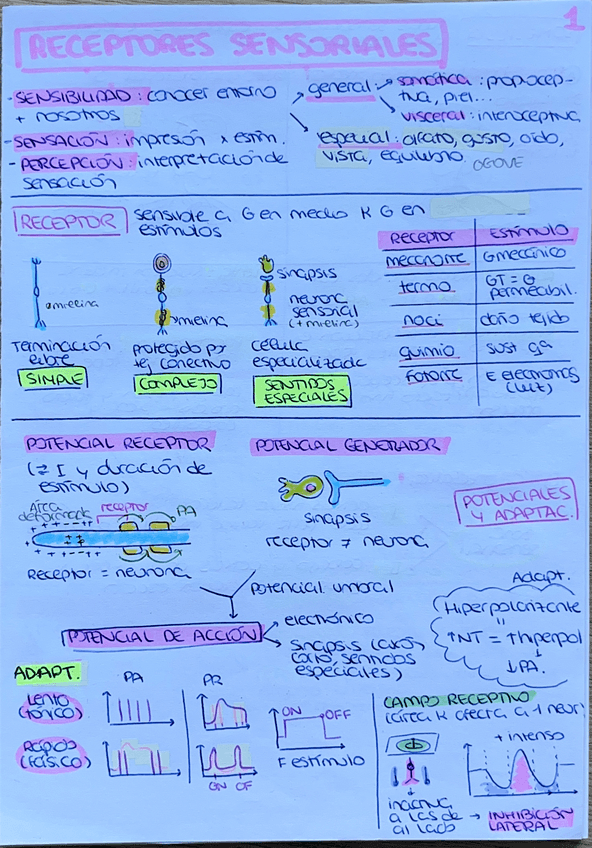 1
RECEPTORES SENSORIALES
- SENSIBILIDAD: conocer entorno
+ nosotros
- SENSACIÓN: impresión x estím.
- PERCEPCIÓN: interpretación de
sensación
general: somática: propocep-
tiva, piel...
visceral: interoceptiva
especial: olfato, gusto, oído,
vista, equilibrio OGOVE
RECEPTOR sensible a en medio K en
estímulos
mielina
Terminación
libre
SIMPLE
mielina
protegido por
tej conectivo
COMPLEJO
sinapsis
neurona
sensorial
(+ mielina)
célula
especializada
SENTIDOS
ESPECIALES
RECEPTOR ESTÍMULO
mecanorre mecánico
termo GT =
permeabil.
noci daño tejido
quimio sust qa
fotorre E electromag
(luz)
POTENCIAL RECEPTOR
(≠ I y duración de
estímulo)
Área
deformada
receptor
PA
Receptor = neurona
POTENCIAL GENERADOR
sinapsis
receptor ≠ neurona
POTENCIALES
Y ADAPTAC.
Potencial umbral
POTENCIAL DE ACCIÓN
electrónico
sinapsis
sentidos
especiales)
Adapt.
Hiperpolarizante
"
↑NT = ↑hiperpol
↓PA.
ADAPT.
PA
PR
Lento
(tónico)
Rápido
(fásico)
ON OF
ON OFF
F estímulo
CAMPO RECEPTIVO
(área K afecta a 1 neur)
+ intenso
inactiva
a las de
al lado → INHIBICIÓN
LATERAL